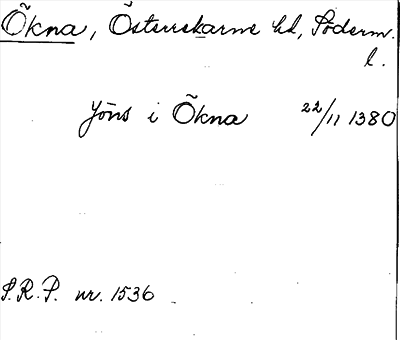 Ökna, Österrekarne hd, Söderm.
l.
Jöns i Ökna 22/11 1380
S.R.P. nr. 1536